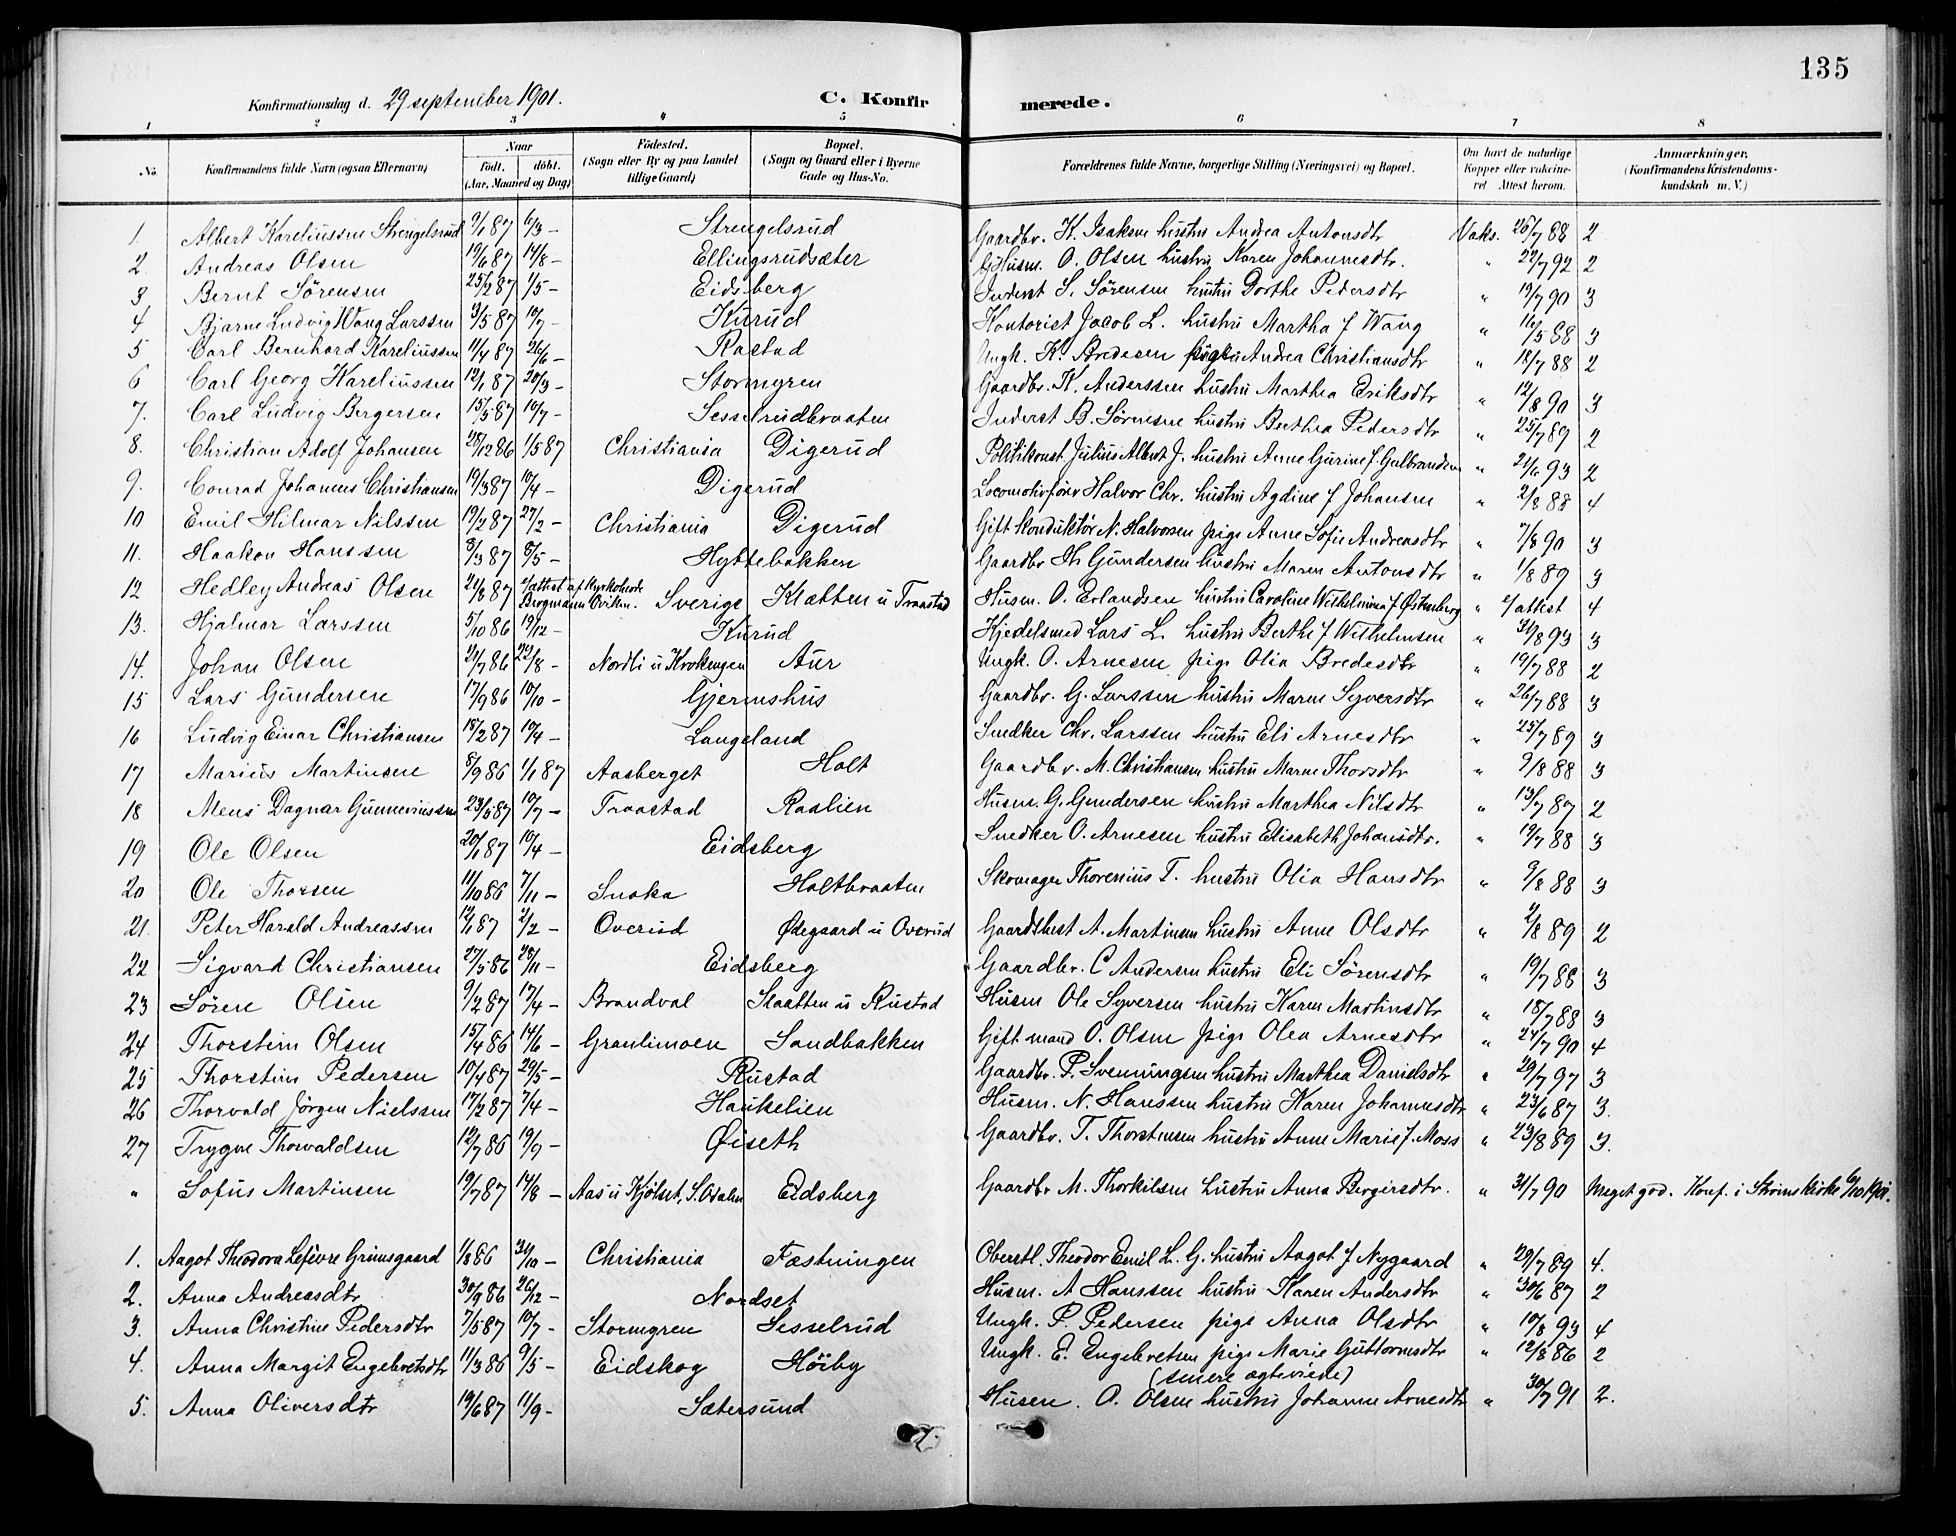 135
Konfirmationsdag d. 29 september 1901. C. Konfirmerede.
1 2 3 4 5 6 7 8
No Konfirmandens fulde Navn (ogsaa Efternavn) Naar født. døbt. (Aar, Maaned og Dag) Fødested. (Sogn eller By og paa Landet tillige Gaard) Bopæl. (Sogn og Gaard eller i Byerne Gade og Hus-No. Forældrenes fulde Navne, borgerlige Stilling (Næringsvei) og Bopæl. Om havt de naturlige Kopper eller vakcineret Attest herom. Anmærkninger. (Konfirmandens Kristendomskundskab m. V.)
1. Albert Kareliussen Strengelsrud 9/1 87 6/3 – Strengelsrud Gaardbr. K. Isaksen hustru Andrea Antonsdtr Vaks. 26/7 88 2
2. Andreas Olsen 19/6 87 14/8 – Ellingsrudsæter Husm. O. Olsen hustru Karen Johannesdtr. " 27/7 92 2
3 Bernt Sörensen 25/2 87 1/5 – Eidsberg Inderst S. Sörensen hustru Dorthe Pedersdtr " 19/7 90 3
4 Bjarne Ludvig Wang Larssen 3/5 87 10/7 – Kurud Kontorist Jacob L. hustru Martha f Wang " 16/5 88 3
5 Carl Bernhard Kareliussen 11/4 87 26/6 – Rastad Ungk. K. Bredesen pige Andrea Christiansdtr " 18/7 88 2
6 Carl Georg Kareliussen 12/1 87 20/3 – Stormyren Gaardbr. K. Anderssen hustru Marthea Eriksdtr " 12/8 90 3
7. Carl Ludvig Bergersen 15/5 87 10/7 – Sesselrudbraaten Inderst B. Sörensen hustru Berthea Pedersdtr " 25/7 89 2
8. Christian Adolf Johansen 28/12 86 1/5 87 Christiania Digerud Politikonst. Julius Albert J. hustru Anne Gurine f. Gulbrandsen " 21/6 93 2
9. Conrad Johannes Christiansen 19/3 87 10/4 – Digerud Locomotivfører Halvor Chr. hustru Agdine f Johansen " 2/8 88 4
10 Emil Hilmar Nilssen 19/2 87 27/2 – Christiania Digerud Gift Konduktör N. Halvorsen pige Anne Sofie Andreasdtr " 7/8 90 3
11. Haakon Hanssen 8/3 87 8/5 – Hyttebakken Gaardbr H. Gundersen hustru Maren Antonsdtr " 1/8 89 3
12 Hedley Andreas Olsen 21/8 87 e/attest af Kyrkoherde Bergmann Oviken. Sverige Klætten u Traastad Husm. O. Erlandsen hustru Caroline Wilhelmina f Østerberg " e/attest 4
13. Hjalmar Larssen 5/10 86 19/12 – Kurud Kjedelsmed Lars L. hustru Berthe f Wilhelmsen " 31/8 93 3
14. Johan Olsen 21/7 86 22/8 – Nordli u Kroksengen Aur Ungk. O. Arnesen pige Olia Bredesdtr " 19/7 88 2
15 Lars Gundersen 17/9 86 10/10 – Gjermshus Gaardbr. G. Larssen hustru Maren Syversdtr " 26/7 88 3
16 Ludvig Einar Christiansen 18/2 87 10/4 – Langeland Snedker Chr. Larssen hustru Eli Arnesdtr " 25/7 89 3
17 Marius Martinsen 8/9 86 1/1 87 Aasberget Holt Gaardbr. M. Christiansen hustru Maren Thorsdtr " 9/8 88 3
18 Mens Dagmar Gunneriussen 23/5 87 10/7 – Traastad Raalien Husm. G. Gundersen hustru Marthea Nilsdtr " 13/7 87 2
19 Ole Olsen 20/1 87 10/4 – Eidsberg Snedker O. Arnesen hustru Elisabeth Johansdtr. " 19/7 88 3
20 Ole Thorsen 11/10 86 7/11 – Snoka Holtbraaten Skomager Thorenius T. hustru Olia Hansdtr " 9/8 88 3
21. Peter Harald Andreassen 12/1 87 2/2 – Overud Ødegaard u Overud Gaardbest A. Martinsen hustru Anne Olsdtr " 2/8 89 2
22 Sigvard Christiansen 27/5 86 28/11 – Eidsberg Gaardbr. C Andersen hustru Eli Sörensdtr " 19/7 88 3
23 Sören Olsen 9/2 87 17/4 – Brandval Slaatten u Rustad Husm Ole Syversen hustru Karen Martinsdtr " 18/7 88 3
24 Thorstein Olsen 15/4 86 14/6 – Granlimoen Sandbakken Gift mand O. Olsen pige Olea Arnesdtr " 24/7 90 4
25 Thorstein Pedersen 10/4 87 29/5 – Rustad Gaardbr. P. Svenningsen hustru Marthea Danielsdtr " 29/7 97 3
26 Thorvald Jörgen Nielssen 17/2 87 7/4 – Haukelien Husm. N. Hanssen hustru Karen Johannesdtr " 23/6 87 3.
27 Trygve Thorvaldsen 12/7 86 19/9 – Øiseth Gaardbr. T. Thorstensen hustru Anne Marie f. Moss " 23/8 89 3.
" Sofus Martinsen 19/7 87 14/8 – Aas u Kjölset, S. Odalen Eidsberg Gaardbr M. Thorkilsen hustru Anna Bergersdtr. " 31/7 90 Meget god. Konf. i Ströms kirke 6/10 1901.
1. Aagot Theodora Lefèvre Grimsgaard 1/8 86 31/10 – Christiania Fæstningen Oberstl. Theodor Emil L. G. hustru Aagot f Nygaard " 29/7 89 4.
2. Anna Andreasdtr 30/9 86 26/12 – Nordset Husm. A Hanssen hustru Karen Andersdtr " 30/6 87 2
3. Anna Christine Pedersdtr 7/5 87 10/7 – Stormyren Sesselrud Ungk. P. Pedersen pige Anna Olsdtr " 10/8 93 4
4. Anna Margit Engebretsdtr 11/3 86 9/5 – Eidskog Höiby Ungk. E. Engebretsen pige Marie Guttormsdtr " 12/8 86 2
(senere ægteviede)
5. Anna Oliversdtr 19/6 87 11/9 – Sætersund Husm. O. Olsen hustru Johanne Arnesdtr " 30/7 91 2.